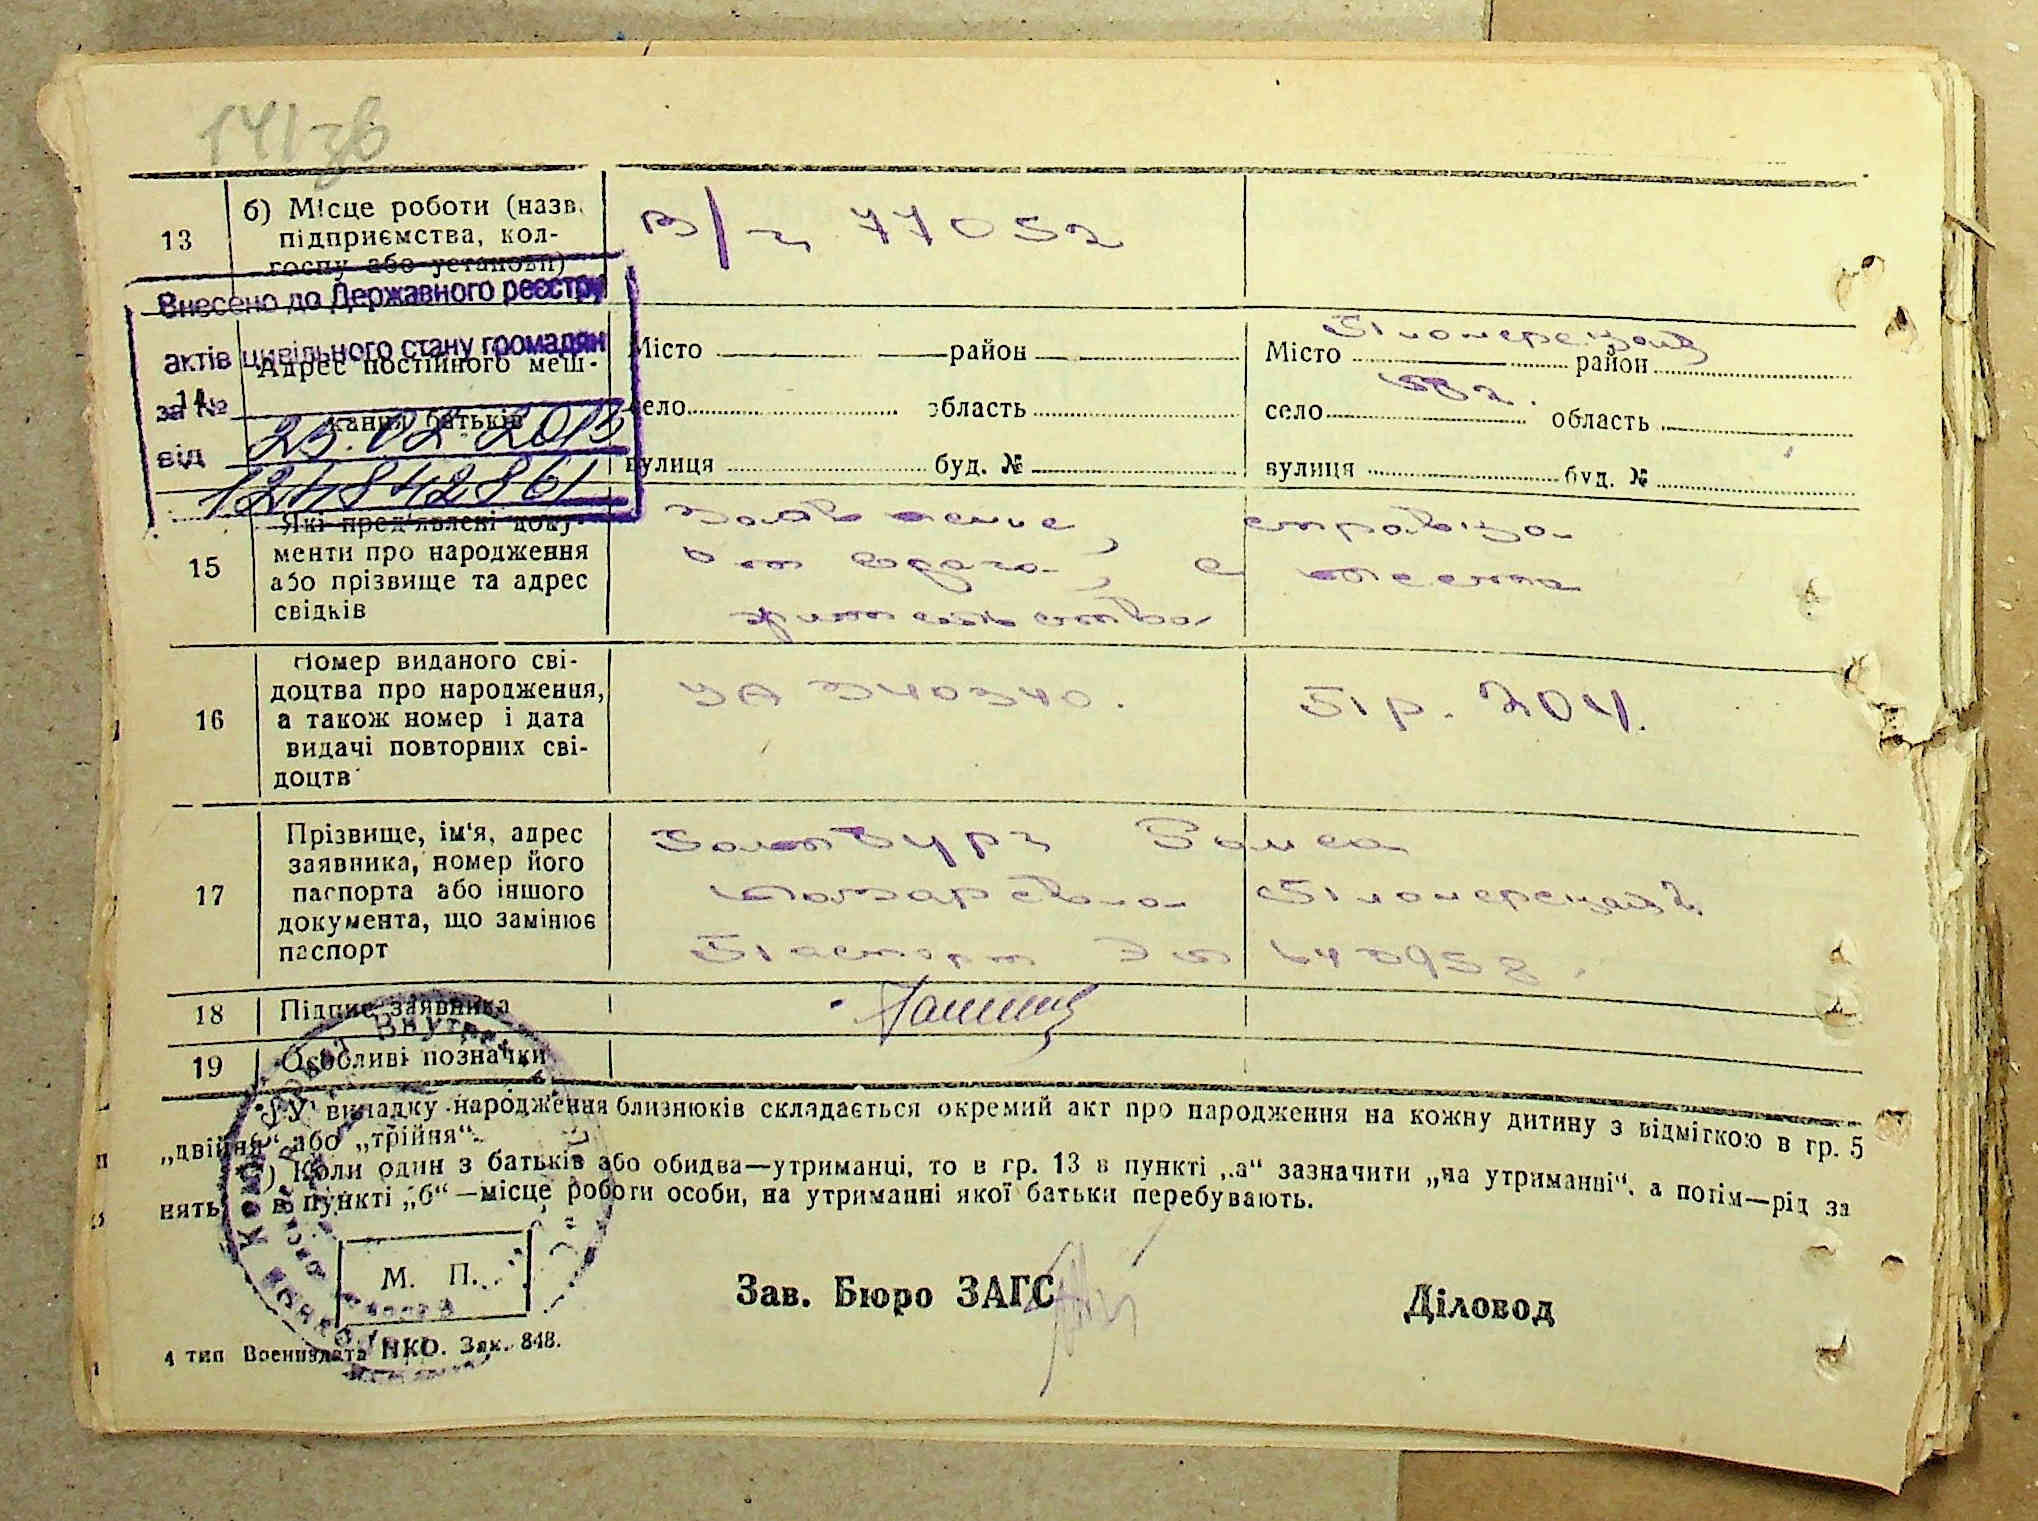 141зв
13
б) Місце роботи (назв.
підприємства, кол-
госпу або установи)
В/ч 77052
Внесено до Державного реєстру
актів цивільного стану громадян
за №
від 25.02.2013
124842861
14
Адрес постійного меш-
кання батьків
Місто район
село область
вулиця буд. №
Місто район
село область
вулиця буд. №
15
Які пред'явлені доку-
менти про народження
або прізвище та адрес
свідків
справка
от врача, с места
жительства
16
Номер виданого сві-
доцтва про народження,
а також номер і дата
видачі повторних сві-
доцтв
УА 340340.
204.
17
Прізвище, ім'я, адрес
заявника, номер його
паспорта або іншого
документа, що замінює
паспорт
Раиса
Паспорт
18
Підпис заявника
19
Особливі позначки
1) У випадку народження близнюків складається окремий акт про народження на кожну дитину з відміткою в гр. 5
„двійня“ або „трійня“.
2) Коли один з батьків або обидва—утриманці, то в гр. 13 в пункті „а“ зазначити „на утриманні“, а потім—рід за
нять, в пункті „б“—місце роботи особи, на утриманні якої батьки перебувають.
М. П.
Зав. Бюро ЗАГС
Діловод
4 тип Воениздата НКО. Зак. 848.